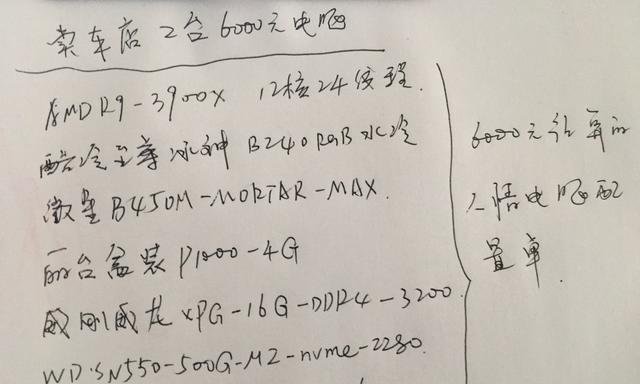 卖车店 2台6000元电脑
AMDR9-3900X 12核24线程.
酷冷至尊冰神B240RGB水冷
微星B450M-MORTAR-MAX.
丽台盒装P1000-4G
威刚威龙XPG-16G-DDR4-3200.
WD:SN550-500G-M2-nvme-2280.
6000元
电脑配
置单.